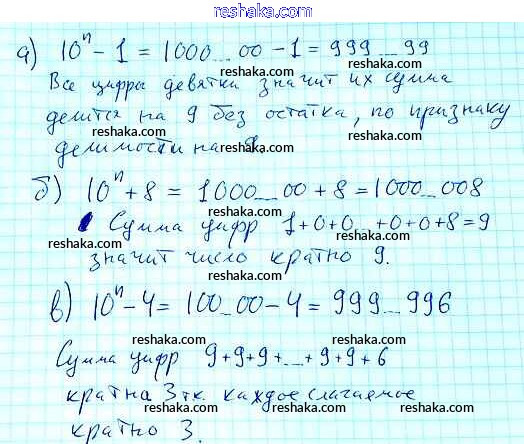 www.reshaka.com
а) 10ⁿ - 1 = 1000...00 - 1 = 999...99
reshaka.com reshaka.com
Все цифры девятки значит их сумма
reshaka.com
делится на 9 без остатка, по признаку
reshaka.com reshaka.com
делимости на 9
reshaka.com
б) 10ⁿ + 8 = 1000...00 + 8 = 1000...008
reshaka.com reshaka.com
Сумма цифр 1+0+0...+0+0+8=9
reshaka.com reshaka.com
значит число кратно 9.
reshaka.com
в) 10ⁿ - 4 = 100...00 - 4 = 999...996
reshaka.com reshaka.com
Сумма цифр 9+9+9+...+9+9+6
reshaka.com
кратна 3 т.к. каждое слагаемое
reshaka.com reshaka.com
кратно 3.
reshaka.com